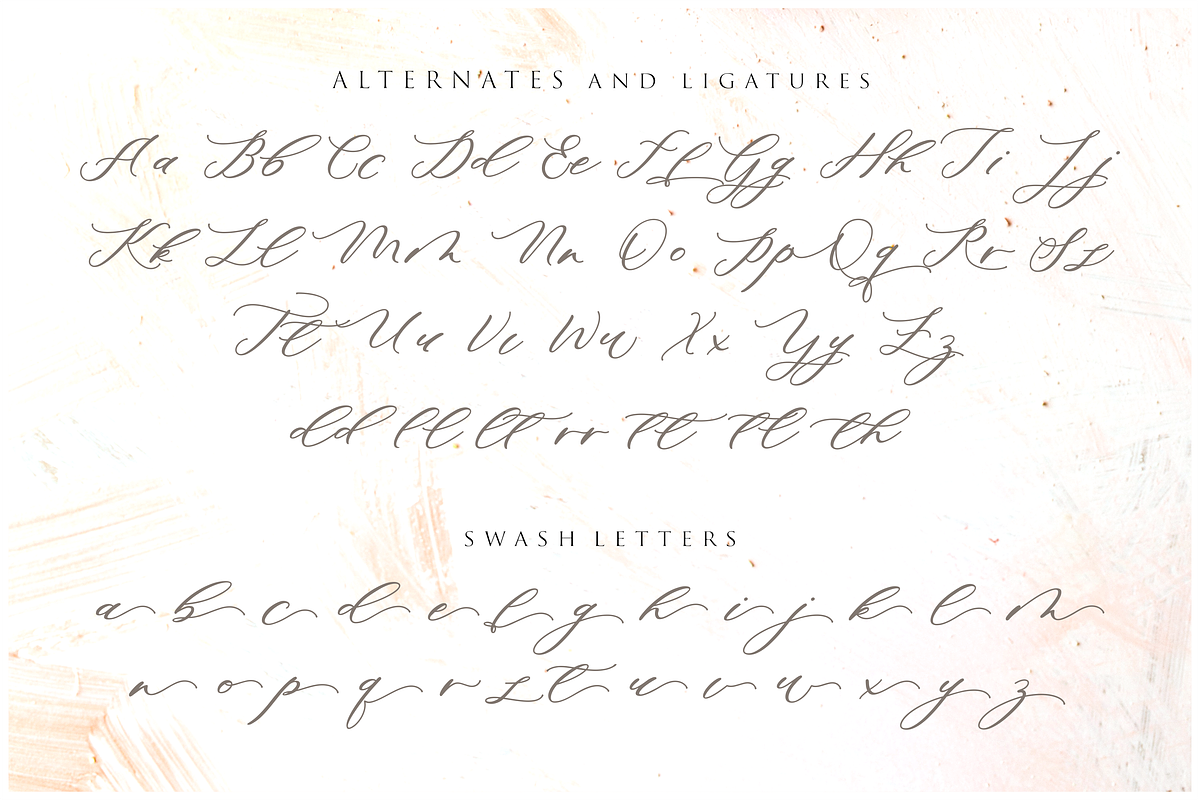 ALTERNATES AND LIGATURES
Aa Bb Cc Dd Ee Ff Gg Hh Ii Jj
Kk Ll Mm Nn Oo Pp Qq Rr Ss
Tt Uu Vv Ww Xx Yy Zz
dd ll lt rr tt tl th
SWASH LETTERS
a b c d e f g h i j k l m
n o p q r s t u v w x y z